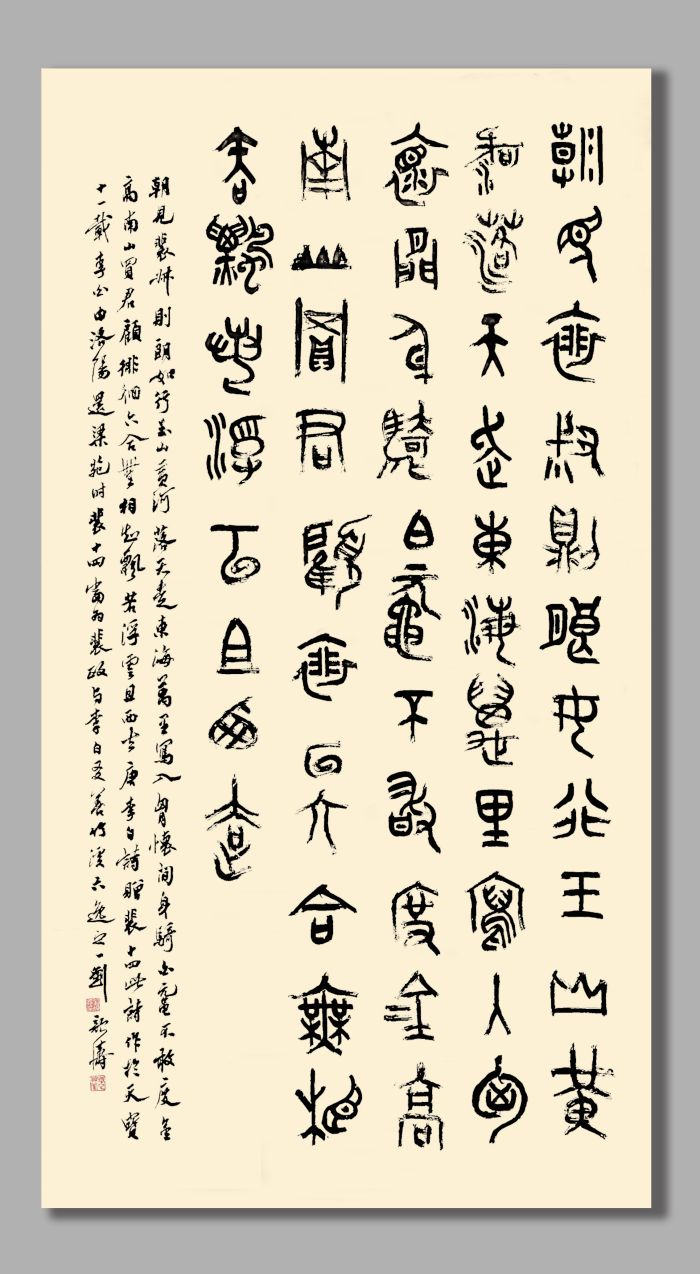 朝見裴叔則朗如行玉山黃
河落天走東海萬里寫入胸
懷間身騎白黿不敢度金高
南山買君顧裴回六合無相
知飄若浮云且西去
朝見裴叔則朗如行玉山黃河落天走東海萬里寫入胷懷間身騎白黿不敢度金
高南山買君顧徘徊六合無相知飄若浮雲且西去唐李白詩贈裴十四此詩作於天寶
十一載李白由洛陽還梁苑時裴十四當為裴政與李白友善竹溪六逸之一劉濤